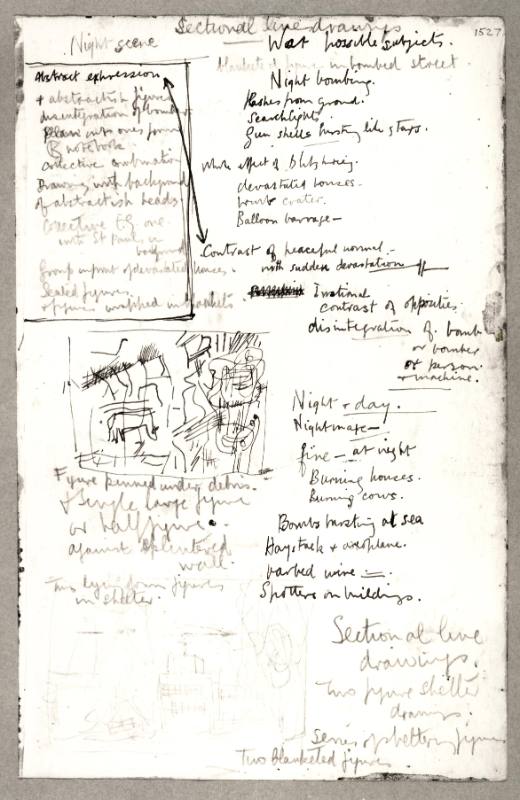 Sectional line drawings
1527
Night scene
War possible subjects.
blanketed figures in bombed street.
Abstract expression
+ abstractish figures
disintegration of bomber
& notebook
Drawing with background
of abstractish heads
with St Pauls in
background
Group in front of devastated houses.
Seated figures.
figures wrapped in blankets
Night bombing.
flashes from ground.
Searchlights
Gun shells bursting like stars.
Whole effect of Blitzkrieg.
devastated houses.
bomb crater.
Balloon barrage —
Contrast of peaceful normal —
with sudden devastation
Irrational
contrast of opposites.
disintegration of bomb
or bomber
or person
+ machine.
Night + day.
Nightmare —
fire — at night
Burning houses.
Burning cows.
Bombs bursting at sea
Haystack + aeroplane.
barbed wire
Spotters on buildings.
Figure pinned under debris.
+ Single large figure
or half figure.
against splintered
wall.
Two lying down figures
in shelter.
Sectional line
drawings.
Two figure shelter
drawings.
Series of sheltering figures
Two Blanketed figures